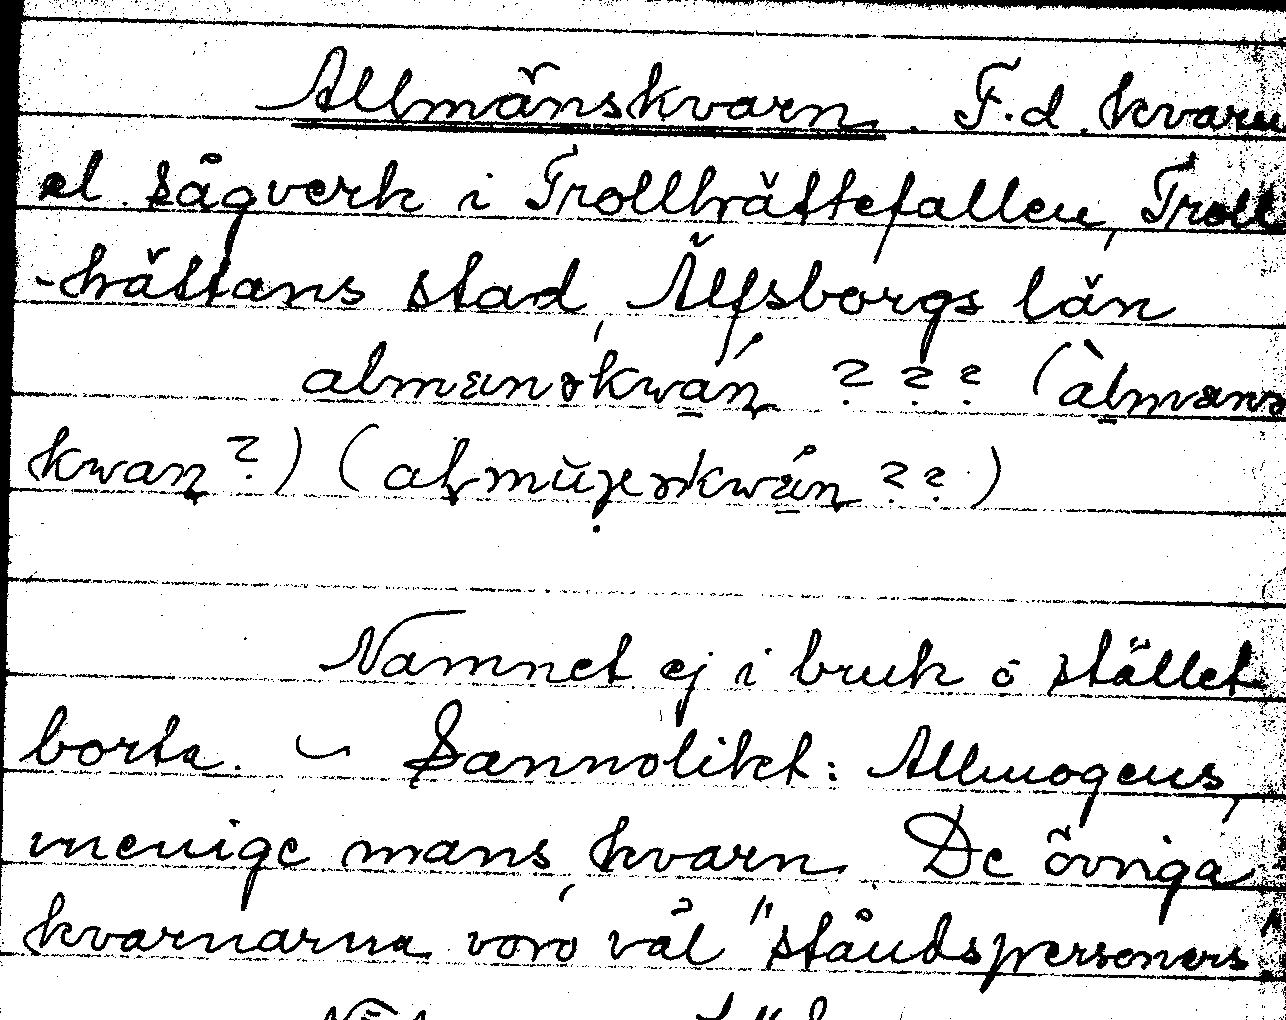 Allmänskvarn. F.d. kvarn
el. sågverk i Trollhättefallen, Troll
-hättans stad, Älfsborgs län
almænskwan ??? (àlmæns
kwan?) (
??)
Namnet ej i bruk o stället
borta. – Sannolikt: Allmogens,
menige mans, kvarn. De övriga
kvarnarna voro väl "ståndspersoners".